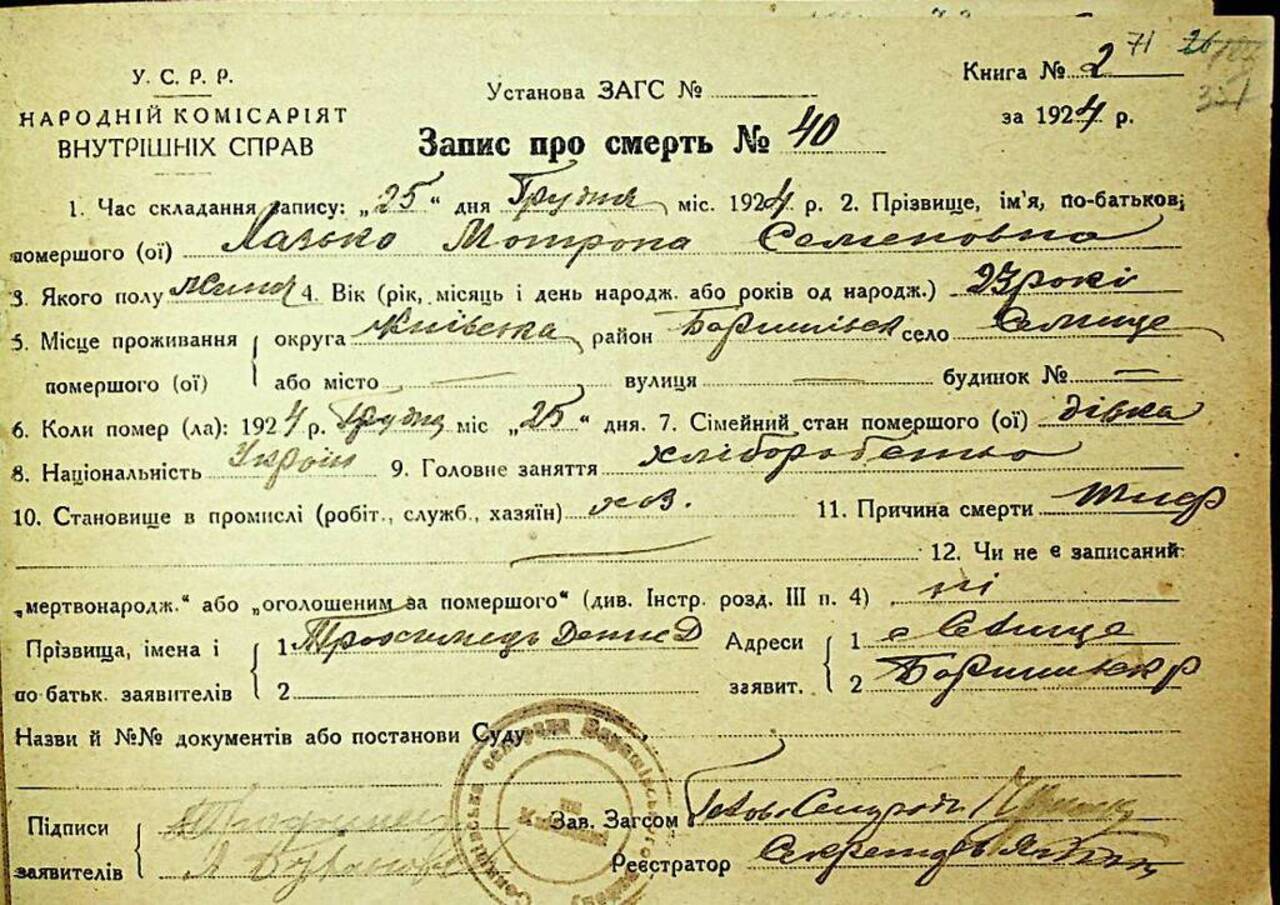 71 26
У. С. Р. Р.
НАРОДНІЙ КОМІСАРІЯТ
ВНУТРІШНІХ СПРАВ
Установа ЗАГС №
Книга № 2
за 1924 р.
Запис про смерть № 40
1. Час складання запису: „25“ дня Грудня міс. 1924 р. 2. Прізвище, ім'я, по-батькові
помершого (ої) Лазько Мотрона Семеновна
3. Якого полу жіноч 4. Вік (рік, місяць і день народж. або років од народж.) 23 років
5. Місце проживання округа Київська район Баришівськ село Селище
помершого (ої) або місто — вулиця — будинок № —
6. Коли помер (ла): 1924 р. Грудня міс „25“ дня. 7. Сімейний стан помершого (ої) дівка
8. Національність Україн 9. Головне заняття хліборобство
10. Становище в промислі (робіт., служб., хазяїн) хоз. 11. Причина смерти тиф
12. Чи не є записаний
„мертвонародж.“ або „оголошеним за помершого“ (див. Інстр. розд. III п. 4) ні
Прізвища, імена і 1 Денис Д Адреси 1 с Селище
по батьк. заявителів 2 заявит. 2 Баришівськ р
Назви й №№ документів або постанови Суду
Підписи Зав. Загсом Голова Сельради
заявителів Реєстратор Секретарь